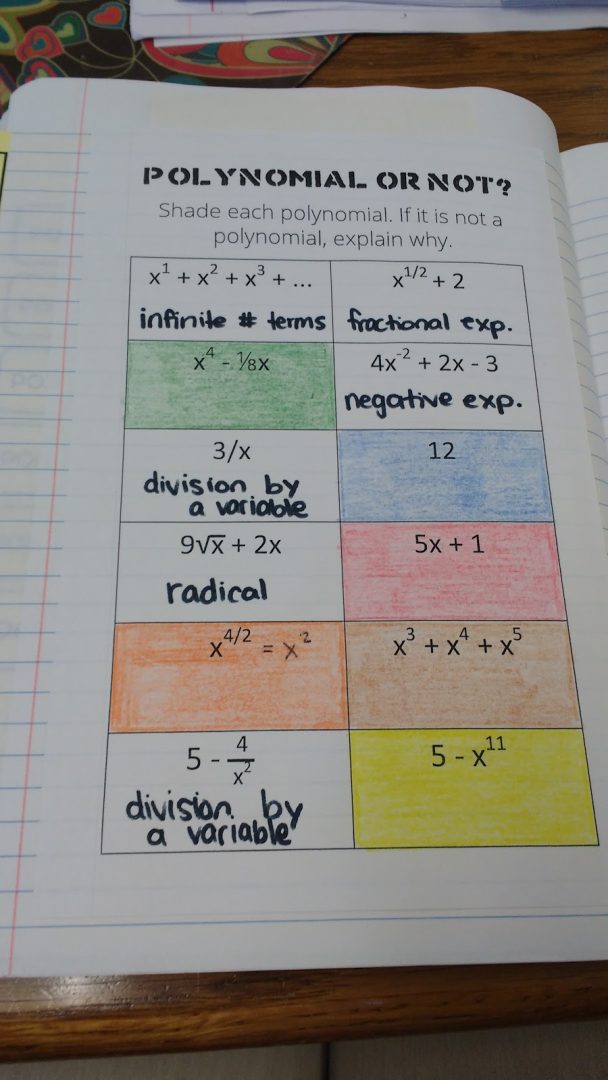 POLYNOMIAL OR NOT?
Shade each polynomial. If it is not a
polynomial, explain why.
x¹ + x² + x³ + ...
infinite # terms
x^1/2 + 2
fractional exp.
x⁴ - ⅛x
4x⁻² + 2x - 3
negative exp.
3/x
division by
a variable
12
9√x + 2x
radical
5x + 1
x^4/2 = x²
x³ + x⁴ + x⁵
5 - 4/x²
division by
a variable
5 - x¹¹